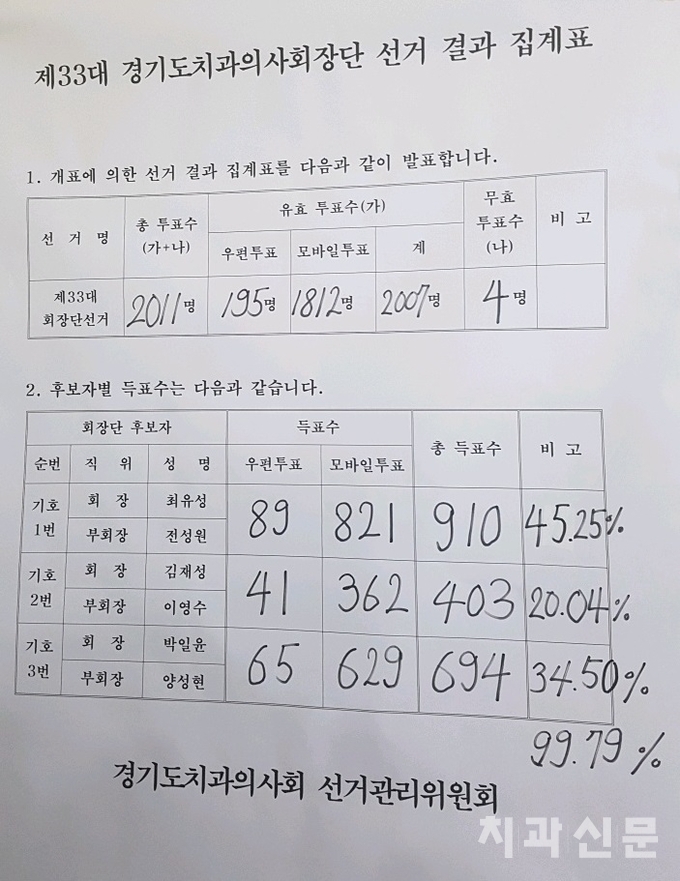 제33대 경기도치과의사회장단 선거 결과 집계표
1. 개표에 의한 선거 결과 집계표를 다음과 같이 발표합니다.
선 거 명 총 투표수 (가+나) 유효 투표수(가) 무효 투표수 (나) 비 고
우편투표 모바일투표 계
제33대 회장단선거 2011명 195명 1812명 2007명 4명
2. 후보자별 득표수는 다음과 같습니다.
회장단 후보자 득표수 총 득표수 비 고
순번 직 위 성 명 우편투표 모바일투표
기호 1번 회 장 최유성 89 821 910 45.25%
부회장 전성원
기호 2번 회 장 김재성 41 362 403 20.04%
부회장 이영수
기호 3번 회 장 박일윤 65 629 694 34.50%
부회장 양성현
99.79%
경기도치과의사회 선거관리위원회
치과신문